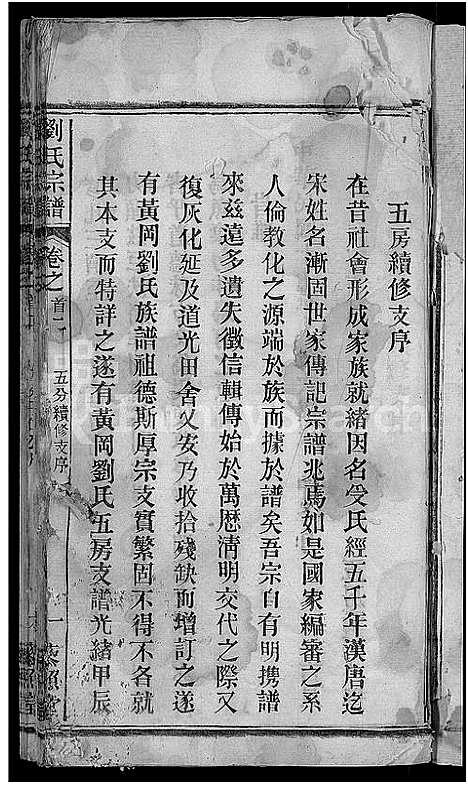 五房續修支序
在昔社會形成家族就緒因名受氏經五千年漢唐迄
宋姓名漸固世家傳記宗譜兆焉如是國家編審之系
人倫教化之源端於族而據於譜矣吾宗自有明攜譜
來茲遠多遺失徵信輯傳始於萬曆清明交代之際又
復灰化延及道光田舍乂安乃收拾殘缺而增訂之遂
有黃岡劉氏族譜祖德斯厚宗支實繁固不得不各就
其本支而特詳之遂有黃岡劉氏五房支譜光緒甲辰
劉氏宗譜
卷之首一
五分續修支序
一
藜照堂